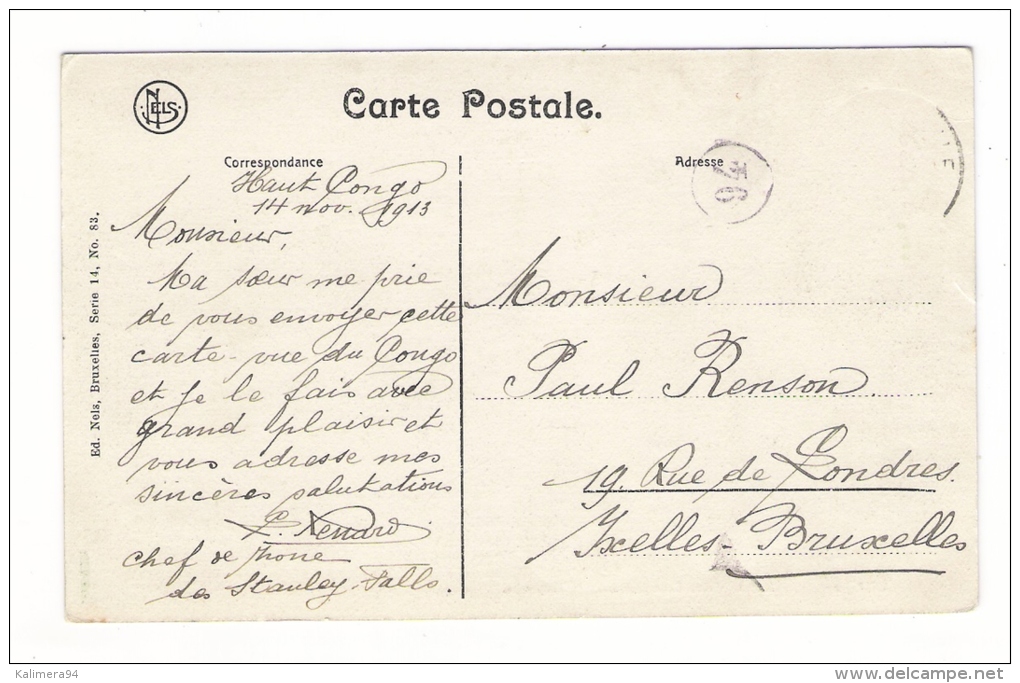 NELS
Carte Postale.
Correspondance
Adresse
Haut Congo
14 nov. 1913
Monsieur,
Ma sœur me prie
de vous envoyer cette
carte-vue du Congo
et je le fais avec
grand plaisir et
vous adresse mes
sincères salutations
chef de zone
des Stanley-Falls.
Ed. Nels, Bruxelles, Serie 14, No. 83.
Monsieur
Paul Renson
19. Rue de Londres.
Ixelles-Bruxelles
Kalimera94
www.delcampe.net